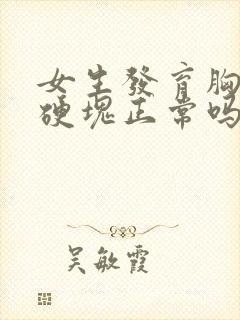 女生發育胸
硬塊正常吗
吴敏霞